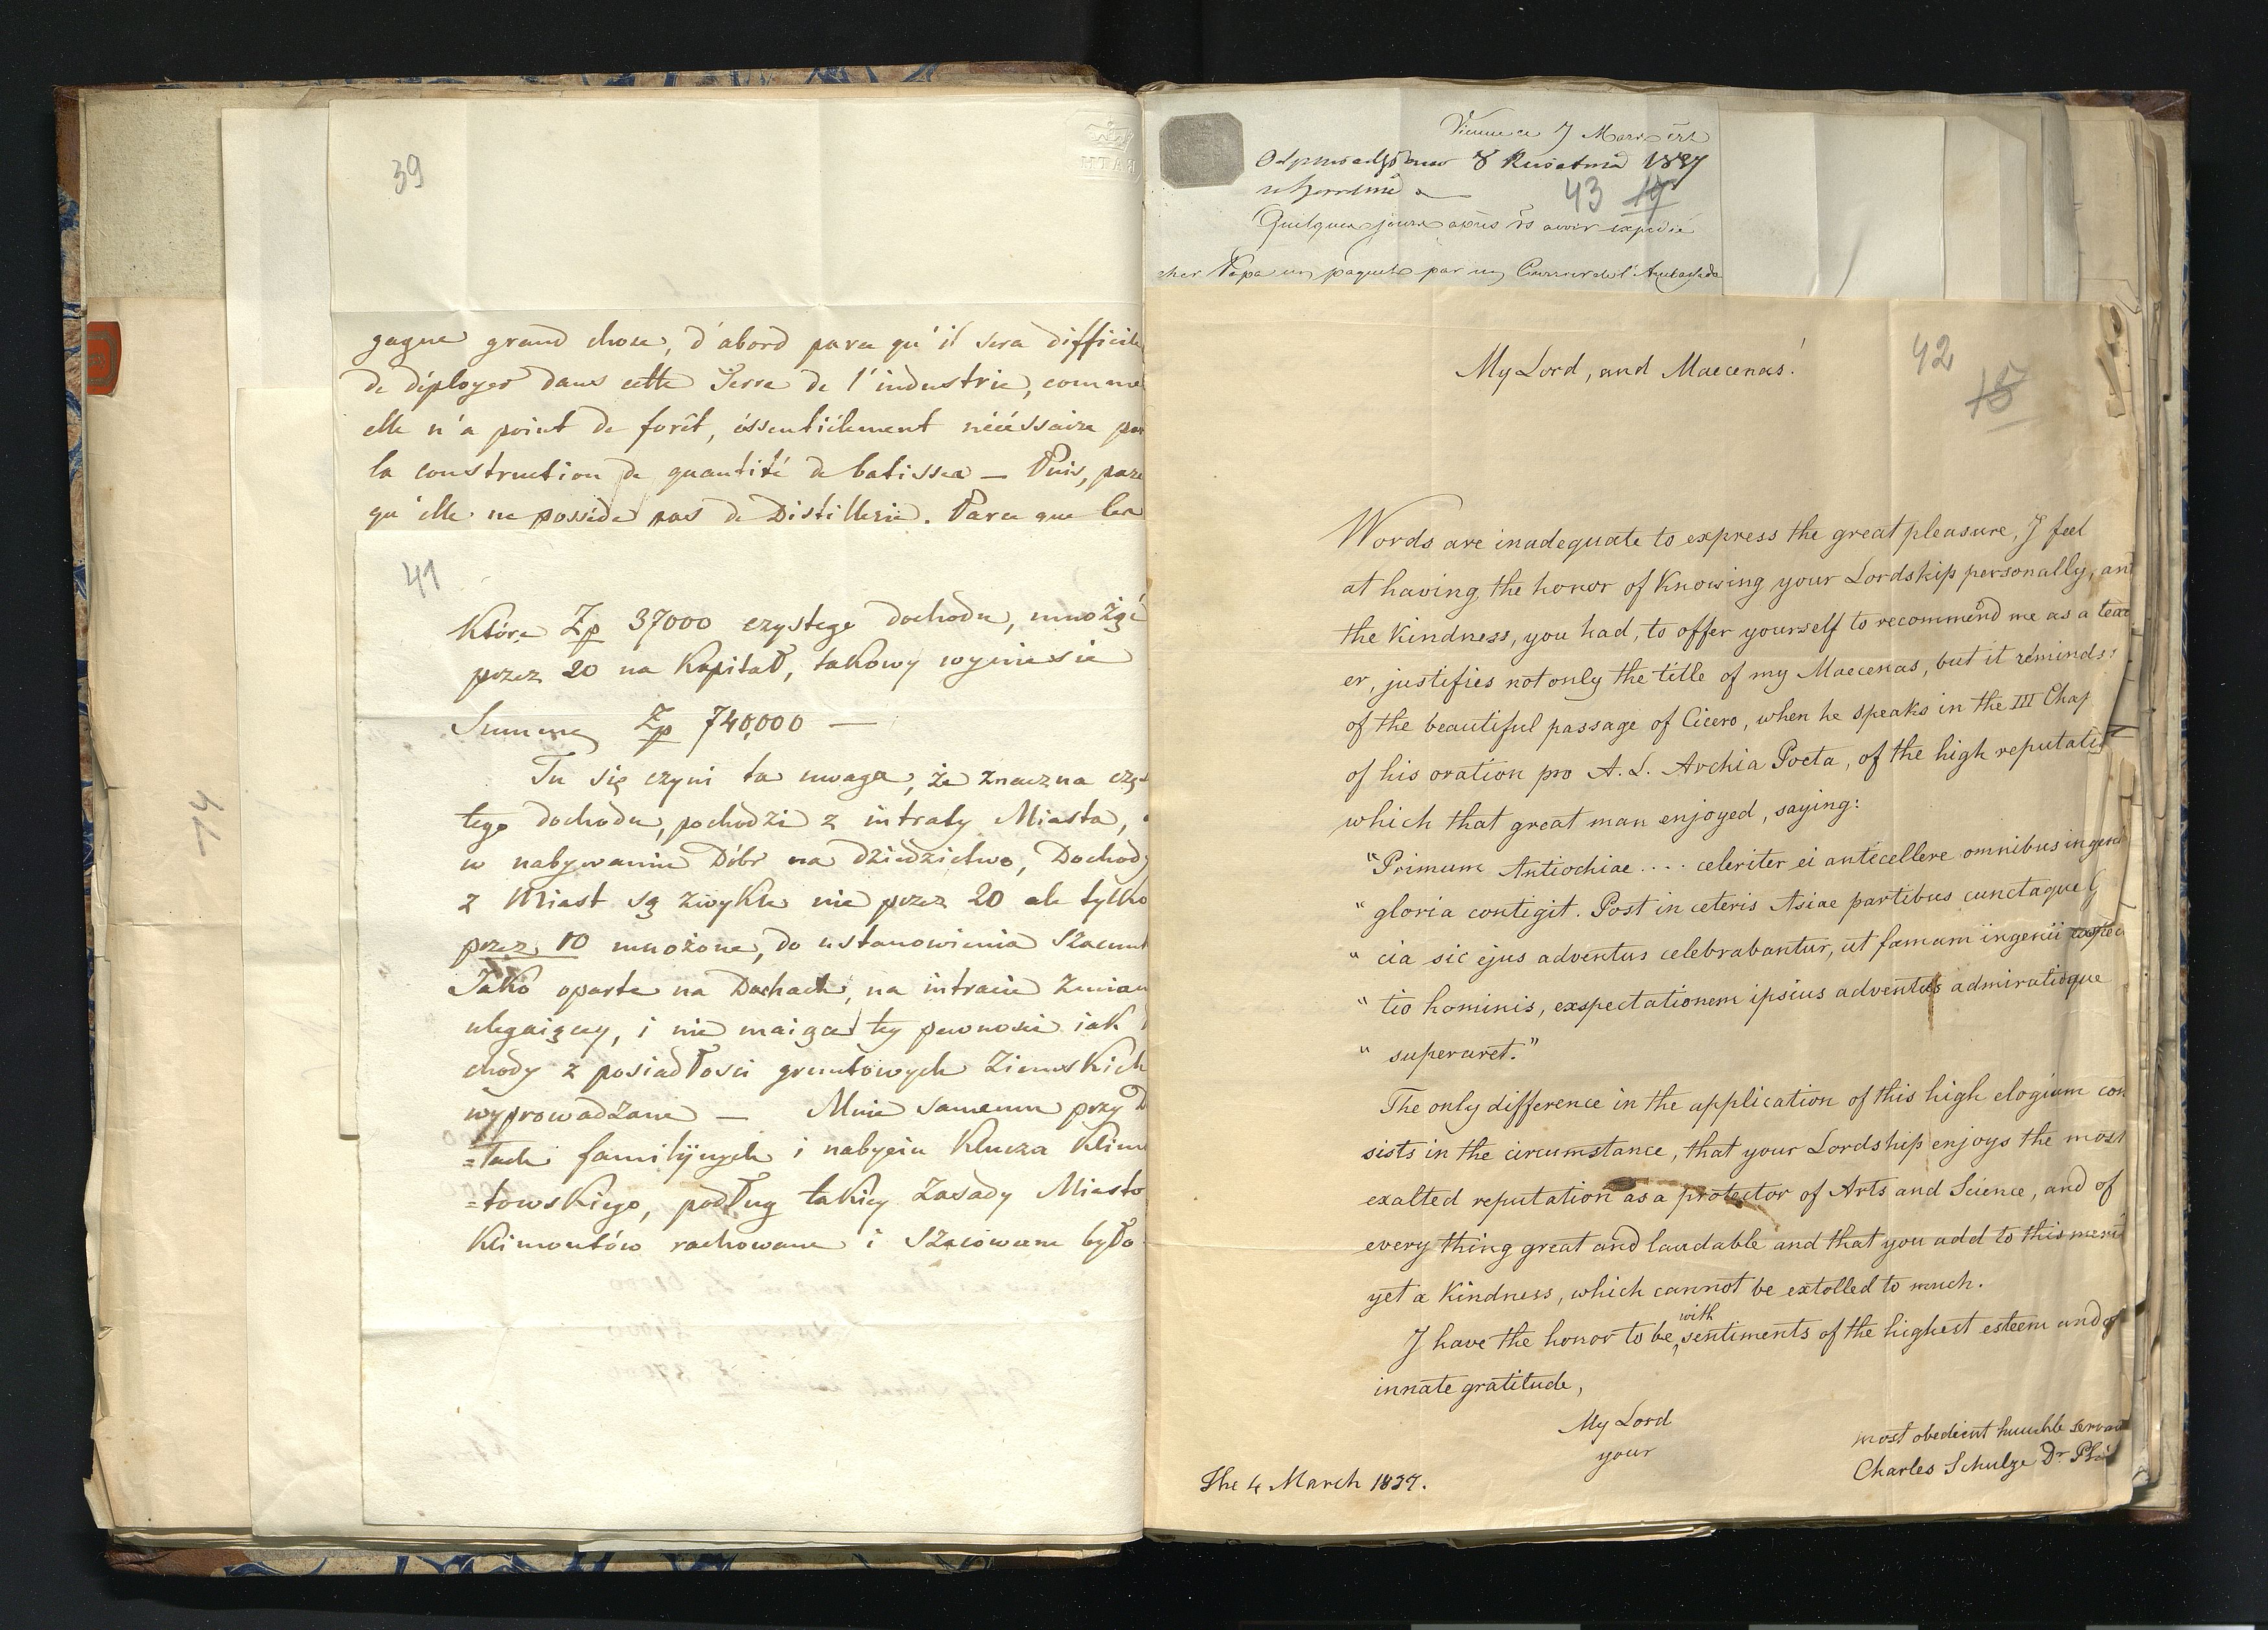 39
gagne grand chose, d'abord parce qu'il sera difficile
de déployer dans cette Terre de l'industrie, comme
elle n'a point de forêt, éssentiélement nécéssaire
la construction de quantité de batisses — Puis,
qu'elle ne posséde pas de Distillerie. Parce que les
41
Które Zp 37000 czystego dochodu, mnożąc
przez 20 na Kapitał, takowy wyniesie
Summę Zp 740,000 —
Tu się czyni ta uwaga, że znaczna
tego dochodu, pochodzi z intraty Miasta,
w nabywaniu Dóbr na dziedzictwo, Dochody
z Miast są zwykle nie przez 20 ale tylko
przez 10 mnożone, do ustanowienia
Jako oparte na Dachach, na intracie
ulegaiącey, i nie maiące tey pewnosci iak
chody z posiadłosci gruntowych Ziemskich
wyprowadzane — Mnie samemu przy
=łach familijnych i nabyciu Klucza Klim
=towskiego, podług takiey zasady Miasto
Klimontów rachowane i szacowane było
BATH
Vienne ce 7 Mars
8 Kwietnia 1837
43 14
Quelques jours après avoir expédié
cher Papa un paquet par un Courrier de l'Ambassade
42
15
My Lord, and Maecenas!
Words are inadequate to express the great pleasure, I feel
at having the honor of Knowing your Lordship personally, and
the Kindness, you had, to offer yourself to recommend me as a teac
er, justifies not only the title of my Maecenas, but it reminds
of the beautiful passage of Cicero, when he speaks in the III Chap
of his oration pro A. L. Archia Poeta, of the high reputati
which that great man enjoyed, saying:
"Primum Antiochiae .... celeriter ei antecellere omnibus ingenii
" gloria contigit. Post in ceteris Asiae partibus cunctaque G
" cia sic ejus adventus celebrabantur, ut famam ingenii exspec
" tio hominis, exspectationem ipsius adventus admiratioque
" superaret."
The only difference in the application of this high elogium con
sists in the circumstance, that your Lordship enjoys the most
exalted reputation as a protector of Arts and Science, and of
every thing great and laudable and that you add to this merit
yet a Kindness, which cannot be extolled to much.
I have the honor to be, with sentiments of the highest esteem and of
innate gratitude,
My Lord
your
most obedient humble servant
Charles Schulze Dr Phil
The 4 March 1837.
74